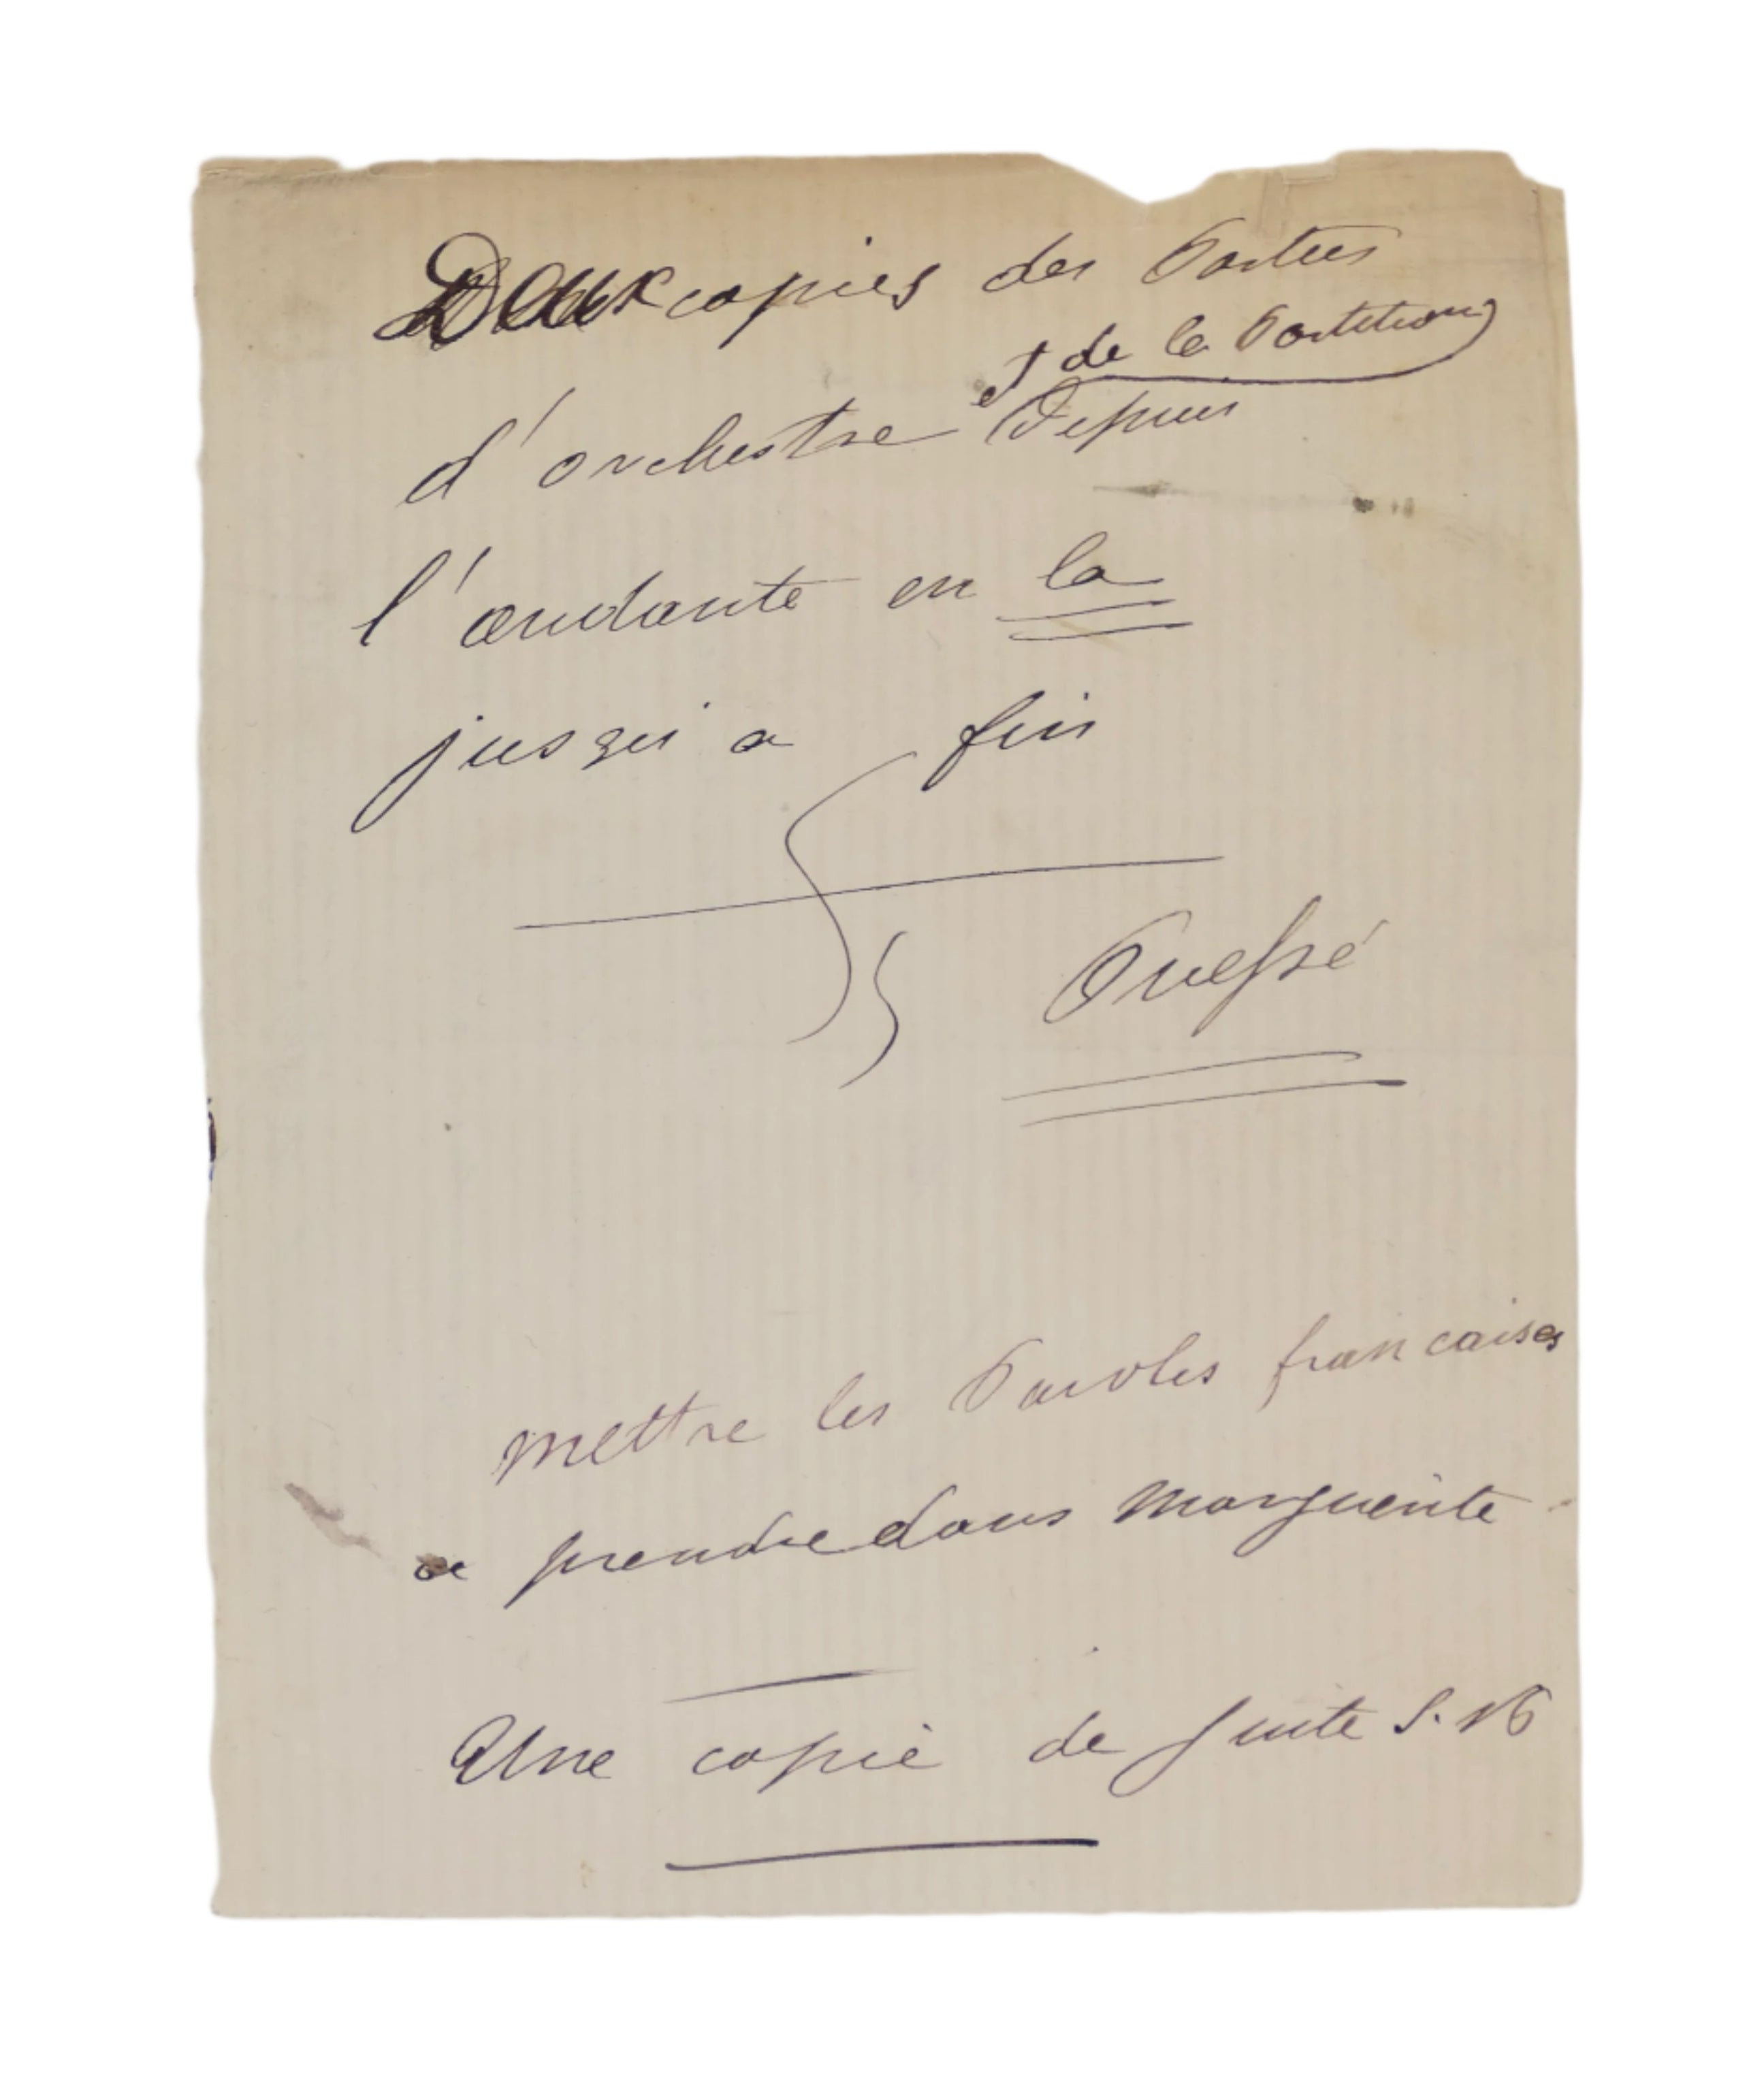 Deux copies des Parties
et de la Partition
d'orchestre Depuis
l'andante en la
jusqu'a fin
Pressé
mettre les Paroles francaises
a prendre dans Marguerite
Une copie de suite S.